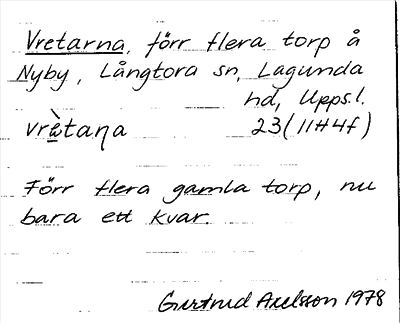 Vretarna, förr flera torp å
Nyby, Långtora sn, Lagunda
hd, Upps.l.
vrètaṇa 23(11H4f)
Förr flera gamla torp, nu
bara ett kvar.
Gertrud Axelsson 1978